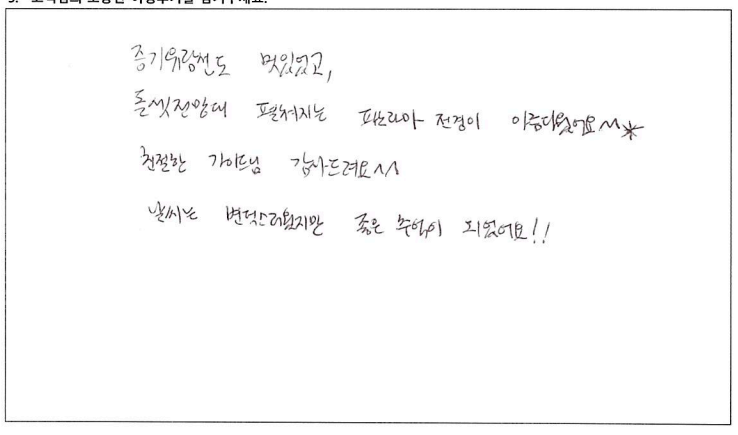 증기유람선도 멋있었고,
돌셋전망대 펼쳐지는 파노라마 전경이 아름다웠어요^^*
친절한 가이드님 감사드려요^^
날씨는 변덕스러웠지만 좋은 추억이 되었어요!!